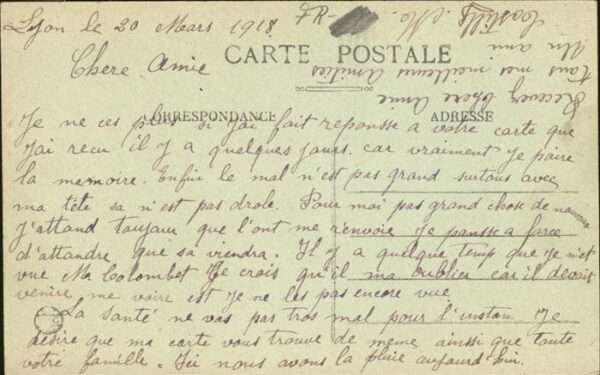 Lyon le 20 Mars 1918
CARTE POSTALE
Chere Amie
CORRESPONDANCE
ADRESSE
Je ne ces plus si j'ai fait reponsse a votre carte que
j'ai recu il y a quelques jours. car vraiment je paire
la memoire. Enfin le mal n'est pas grand surtous avec
ma tête sa n'est pas drole. Pour moi pas grand chose de nouveau
j'attand toujour que l'ont me renvoie je pansse a force
d'attandre que sa viendra. Il y a quelque temp que je n'est
vue Ma Colombet je crois qu'il ma oublier car il devait
venire me voire est je ne les pas encore vue
La santé ne vas pas tros mal pour l'instan je
desire que ma carte vous trouve de meme ainsi que toute
votre famille. Ici nous avons la pluie aujourd'hui.
Recevez Chere Amie
tous mes meilleures Amitiés
Un ami